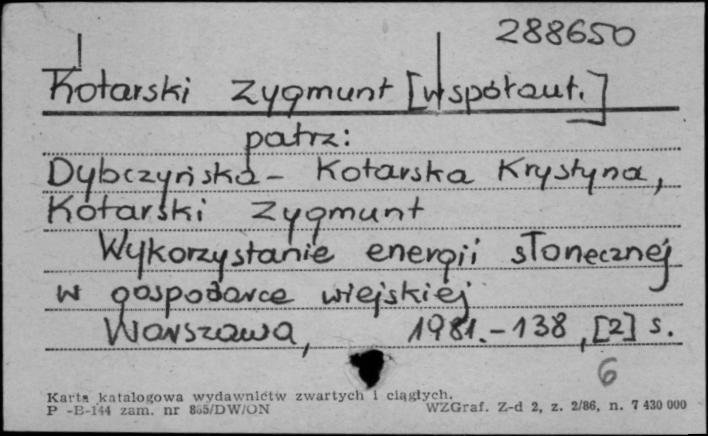 288650
Kotarski Zygmunt [współaut.]
patrz:
Dybczyńska- Kotarska Krystyna,
Kotarski Zygmunt
Wykorzystanie energii słonecznej
w gospodarce wiejskiej
Warszawa, 1981.-138, [2] s.
6
Karta katalogowa wydawnictw zwartych i ciągłych.
P -B-144 zam. nr 865/DW/ON WZGraf. Z-d 2, z. 2/86, n. 7 430 000